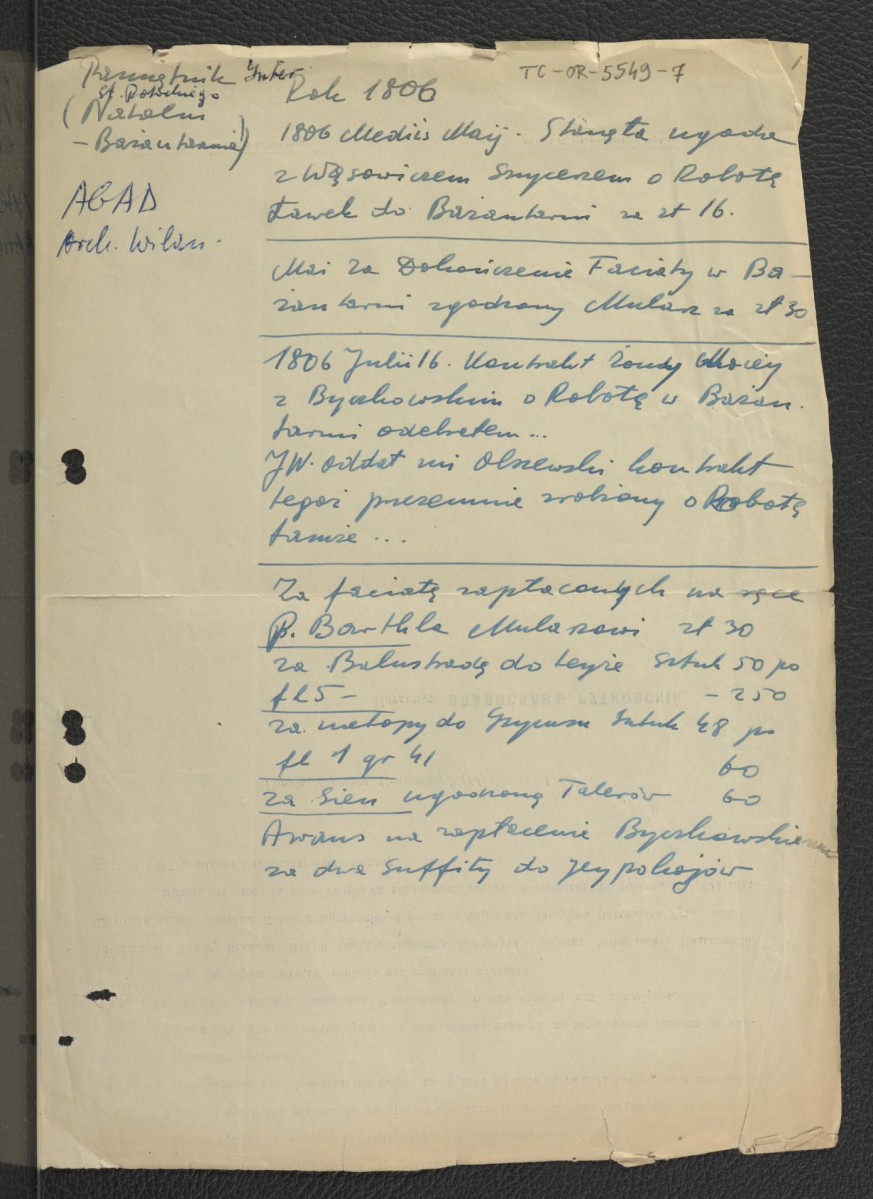 Pamiętnik Inter.
St. Potockiego
(Natolin
- Bażantarnia)
AGAD
Arch. Wilan.
TC-OR-5549-7
1
Rok 1806
1806 Mediis Maij. Stanęła ugoda
z Wąsowiczem Snycerzem o Robotę
Ławek do Bażantarni za zł 16.
Mai za Dokończenie Faciaty w Ba-
żantarni zgodzony Mularz za zł 30
1806 Julii 16. Kontrakt Żony Moiey
z Byczkowskim o Robotę w Bażan.
tarni odebrałem...
JW. oddał mi Olszewski kontrakt
tegoż przezemnie zrobiony o Robotę
tamże ...
Za faciatę zapłaconych na ręce
P. Barthla Mularzowi zł 30
za Balustradę do teyże Sztuk 50 po
fl 5 - - 250
za metopy do Gzymsu Sztuk 48 po
fl 1 gr 41 60
za Sień ugodzoną Talerów 60
Awans na zapłacenie Byczkowskiemu
za dwa Suffity do Jey pokojów